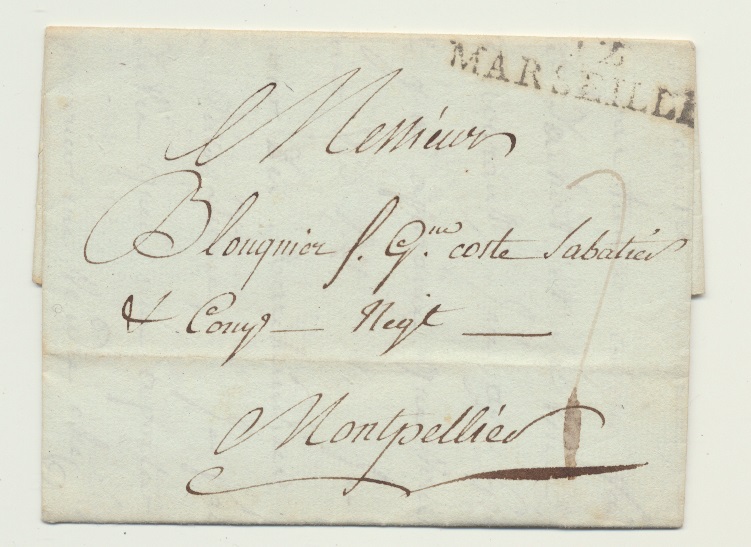 12
MARSEILLE
Messieurs
Blouquier f. Gme. coste Sabatier
& Compe Negt
Montpellier